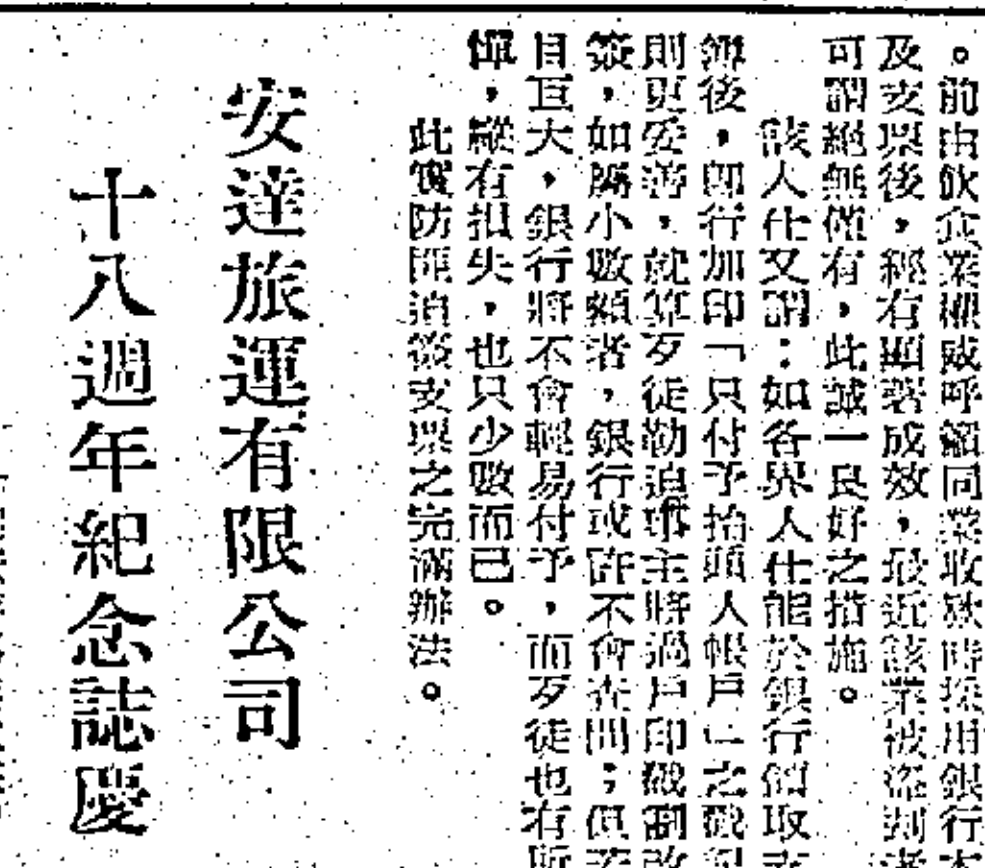 。前由飲食業權威呼籲同業收款時採用銀行本
及支票後，經有顯著成效，最近該業被盜刧者
可謂絕無僅有，此誠一良好之措施。
該人仕又謂：如各界人仕能於銀行領取支
後，即行加印「只付予抬頭人帳戶」之戳記
則更妥善，就算歹徒勒迫事主將過戶印戳劃改
，如屬小數額者，銀行或許不會查問；但若
目亙大，銀行將不會輕易付予，而歹徒也有所
憚，縱有損失，也只少數而已。
此實防匪迫簽支票之完滿辦法。
安達旅運有限公司
十八週年紀念誌慶